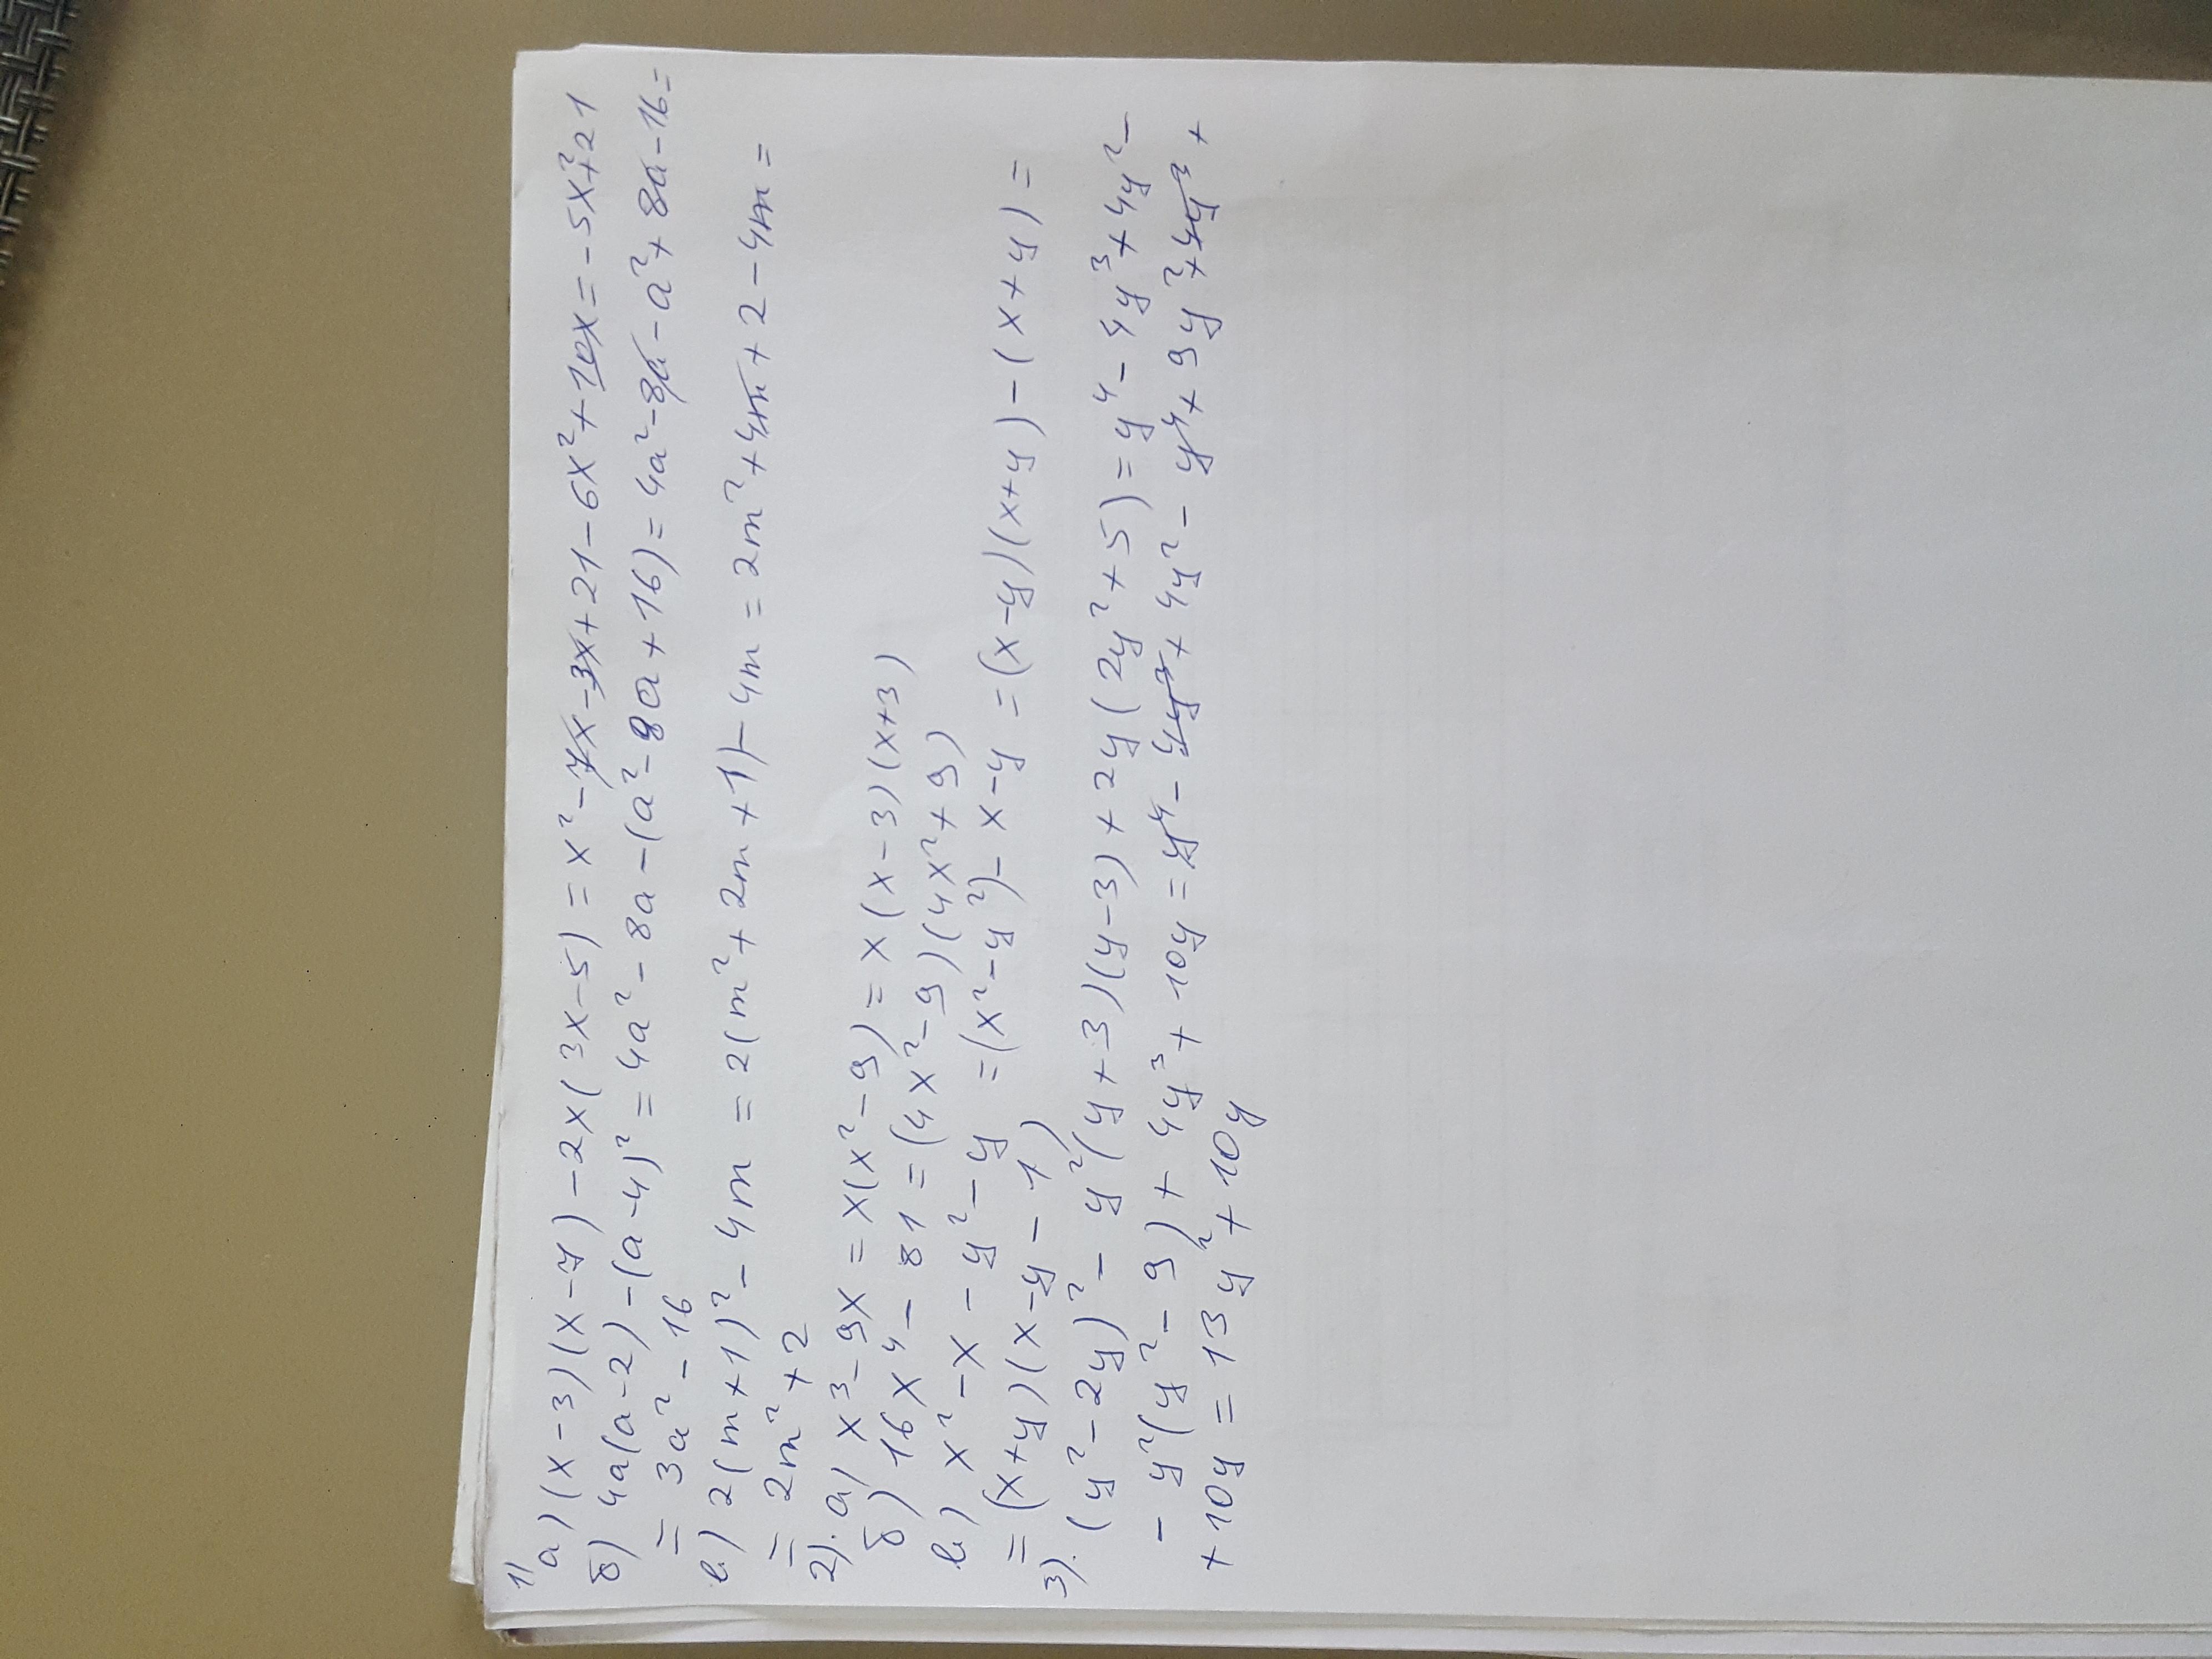 1)
а) (x-3)(x-7)-2x(3x-5)=x²-7x-3x+21-6x²+10x=-5x²+21
б) 4a(a-2)-(a-4)²=4a²-8a-(a²-8a+16)=4a²-8a-a²+8a-16=
=3a²-16
в) 2(m+1)²-4m=2(m²+2m+1)-4m=2m²+4m+2-4m=
=2m²+2
2). а) x³-9x=x(x²-9)=x(x-3)(x+3)
б) 16x⁴-81=(4x²-9)(4x²+9)
в) x²-x-y²-y=(x²-y²)-x-y=(x-y)(x+y)-(x+y)=
=(x+y)(x-y-1)
3). (y²-2y)²-y²(y+3)(y-3)+2y(2y²+5)=y⁴-4y³+4y²-
-y²(y²-9)+4y³+10y=y⁴-4y³+4y²-y⁴+9y²+4y³+
+10y=13y²+10y